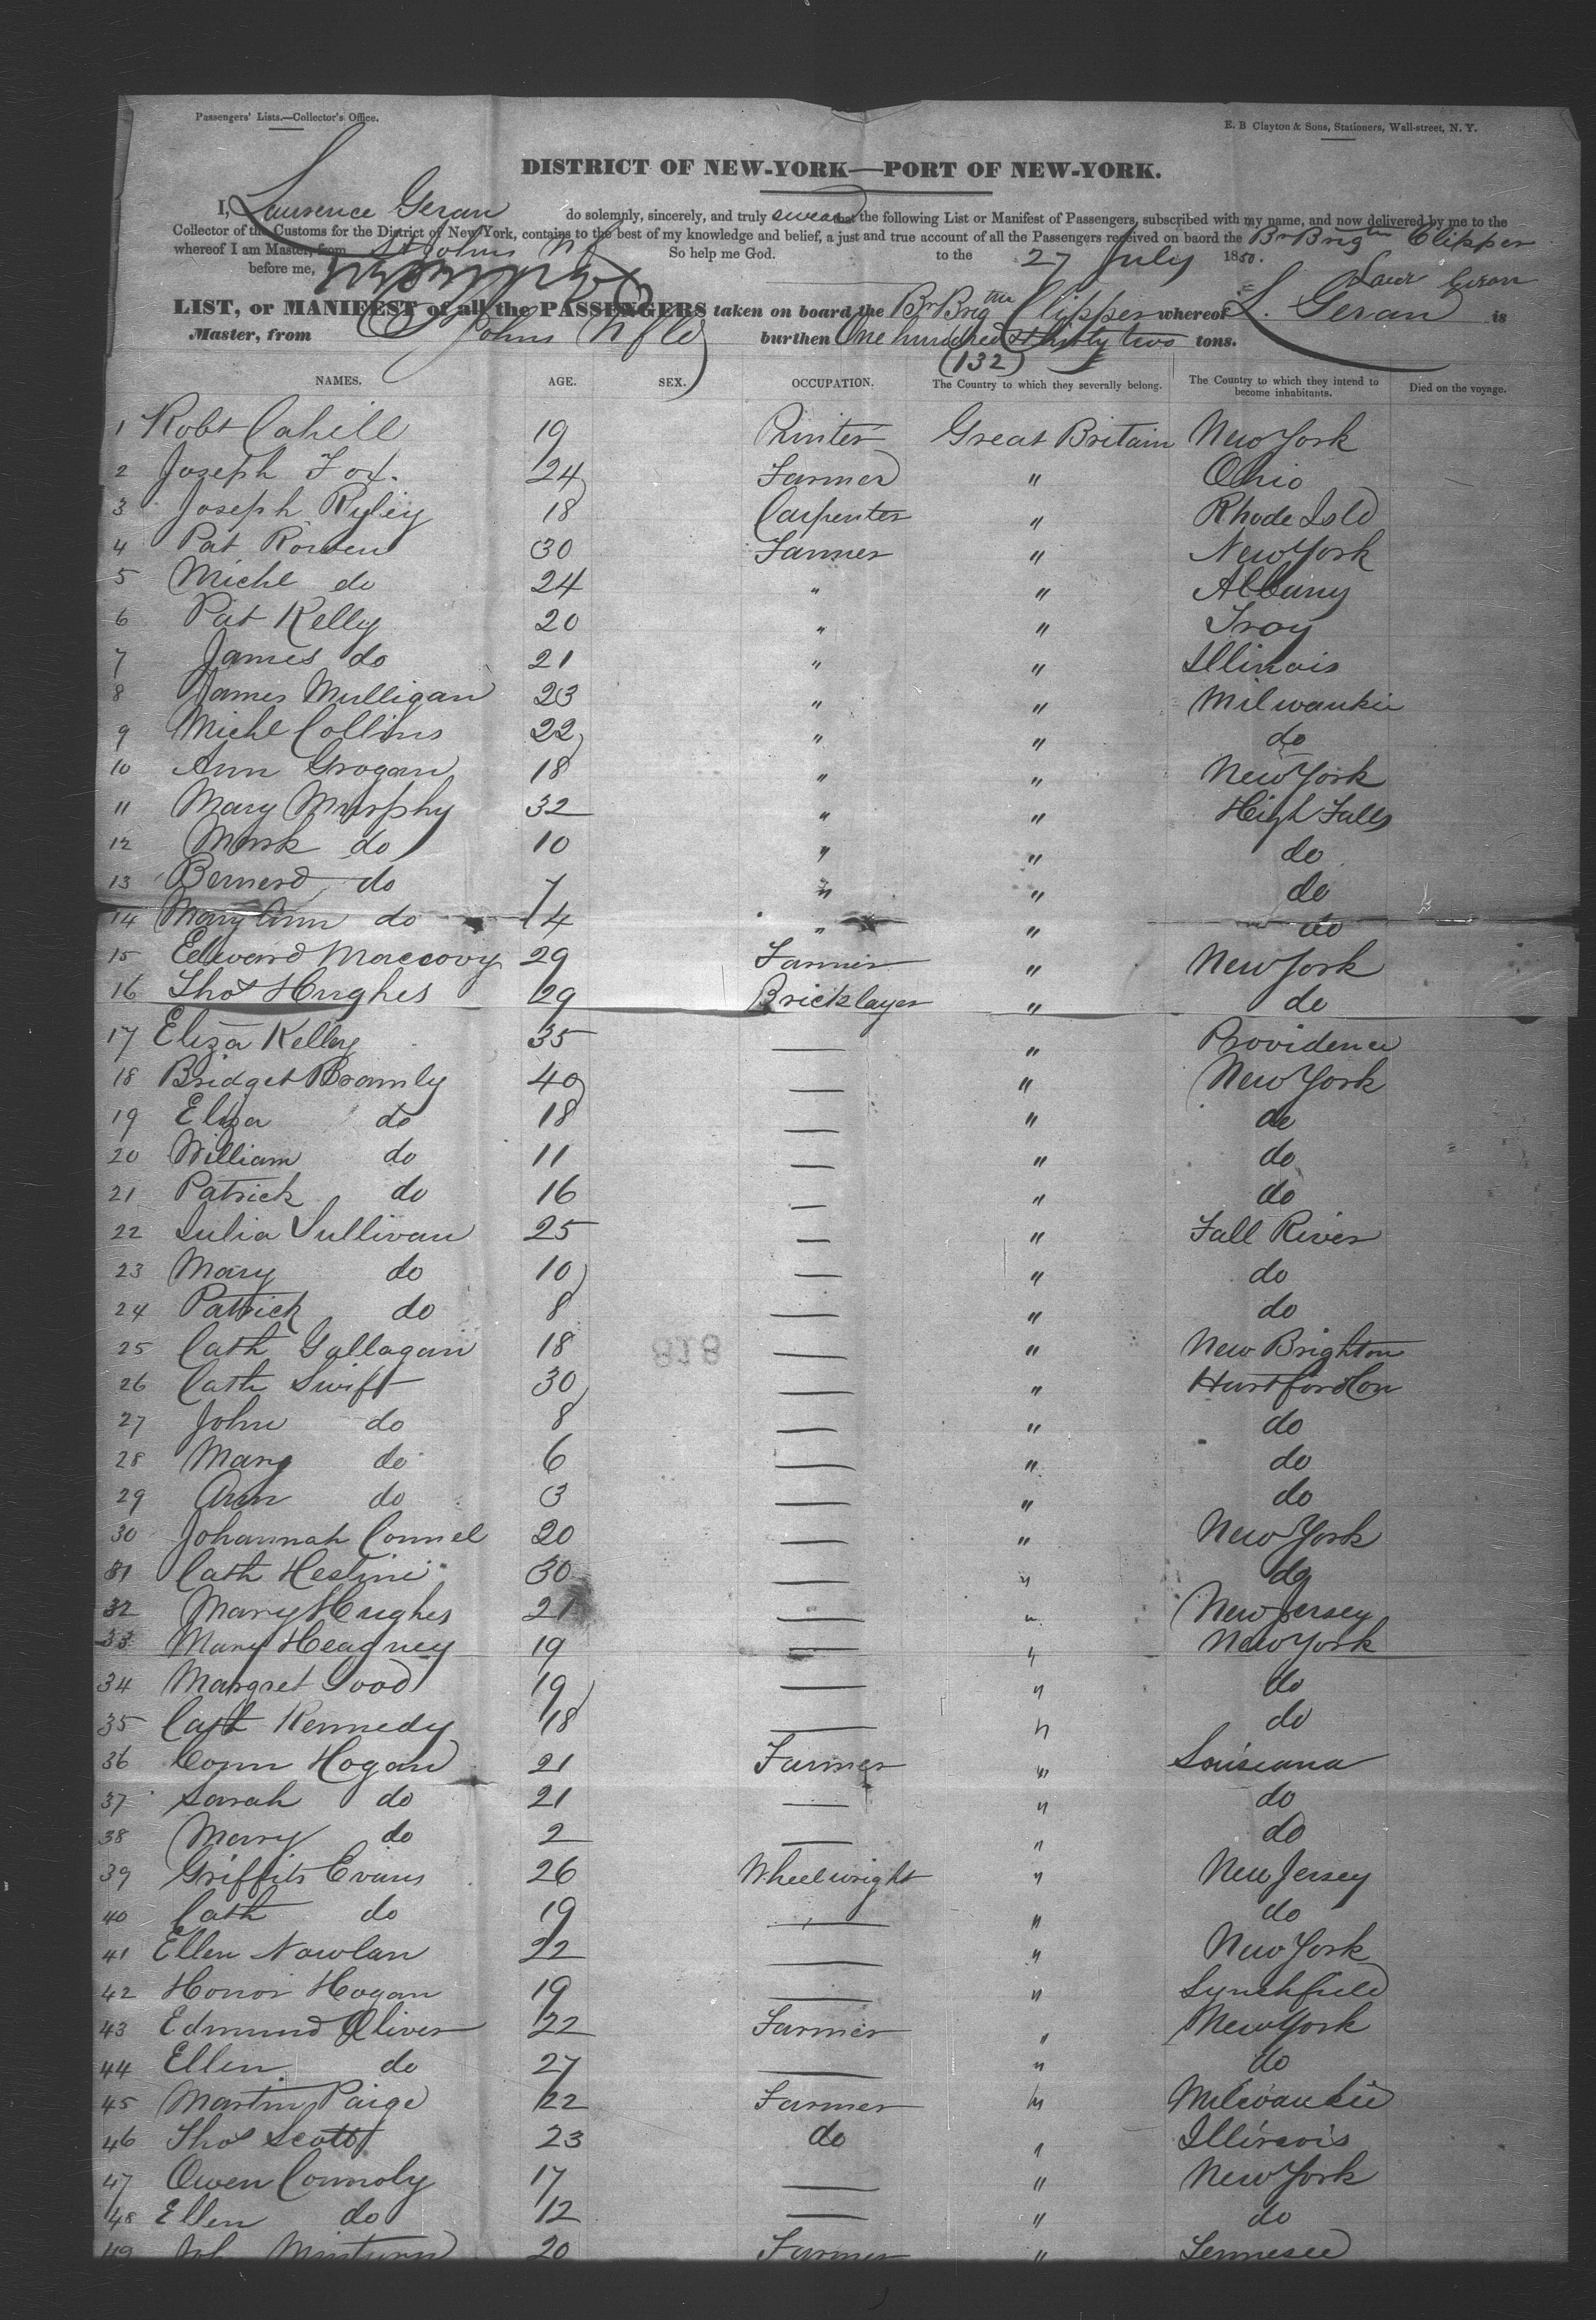 Passengers' Lists.—Collector's Office.
E. B Clayton & Sons, Stationers, Wall-street, N. Y.
DISTRICT OF NEW-YORK—PORT OF NEW-YORK.
I, Laurence Geran do solemnly, sincerely, and truly swear that the following List or Manifest of Passengers, subscribed with my name, and now delivered by me to the
Collector of the Customs for the District of New York, contains to the best of my knowledge and belief, a just and true account of all the Passengers received on baord the Br Brigtn Clipper
whereof I am Master, from St Johns Nf So help me God. to the 27 July 1850.
before me, Laur Geran
LIST, or MANIFEST of all the PASSENGERS taken on board the Br Brigtn Clipper whereof L. Geran is
Master, from St Johns Nfld burthen One hundred & thirty two tons.
(132)
NAMES. AGE. SEX. OCCUPATION. The Country to which they severally belong. The Country to which they intend to become inhabitants. Died on the voyage.
1 Robt Cahill 19 Printer Great Britain New York
2 Joseph Fox. 24 Farmer " Ohio
3 Joseph Ryley 18 Carpenter " Rhode Isld
4 Pat Rowen 30 Farmer " New York
5 Michl do 24 " " Albany
6 Pat Kelly 20 " " Troy
7 James do 21 " " Illinois
8 James Mulligan 23 " " Milwaukie
9 Michl Collins 22 " " do
10 Ann Grogan 18 " " New York
11 Mary Murphy 32 " " High Falls
12 Mark do 10 " " do
13 Bernerd do 7 " " do
14 Mary Ann do 4 " " do
15 Edward Maccovy 29 Farmer " New York
16 Thos Hughes 29 Bricklayer " do
17 Eliza Kelley 35 — " Providence
18 Bridget Bramly 40 — " New York
19 Eliza do 18 — " do
20 William do 11 — " do
21 Patrick do 16 — " do
22 Julia Sullivan 25 — " Fall River
23 Mary do 10 — " do
24 Patrick do 8 — " do
25 Cath Gallagan 18 — " New Brighton
26 Cath Swift 30 — " Hartford Con
27 John do 8 — " do
28 Mary do 6 — " do
29 Ann do 3 — " do
30 Johannah Connel 20 — " New York
31 Cath Hestini 30 — " do
32 Mary Hughes 21 — " New Jersey
33 Mary Heagney 19 — " New York
34 Margret Good 19 — " do
35 Cath Kennedy 18 — " do
36 Conn Hogan 21 Farmer " Louiseana
37 Sarah do 21 — " do
38 Mary do 2 — " do
39 Griffits Evans 26 Wheelwright " New Jersey
40 Cath do 19 — " do
41 Ellen Nowlan 22 — " New York
42 Honor Hogan 19 — " Lynchfield
43 Edmund Oliver 22 Farmer " New York
44 Ellen do 27 — " do
45 Martin Paige 22 Farmer " Milwaukie
46 Thos Scott 23 do " Illinois
47 Owen Connoly 17 — " New York
48 Ellen do 12 — " do
49 20 Farmer " Tennesee